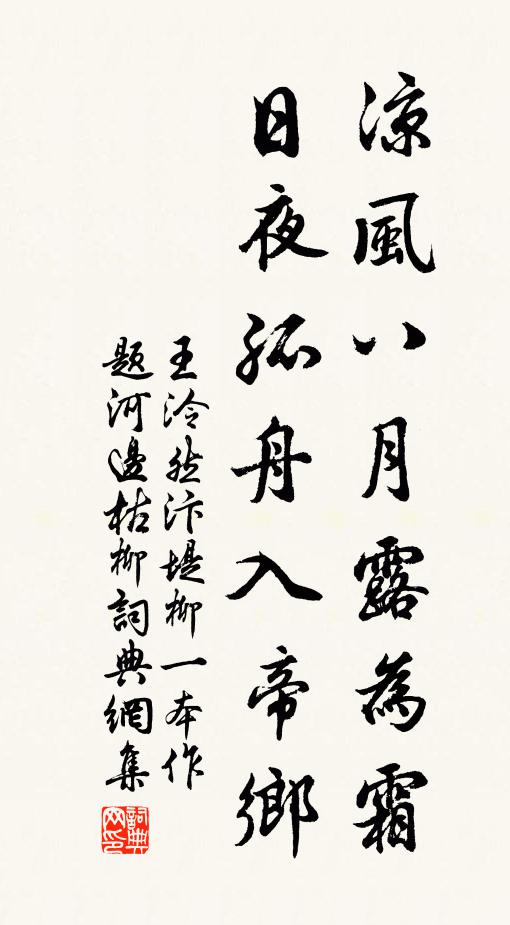 涼風八月露為霜
日夜孤舟入帝鄉
王泠然汴堤柳一本作
題河邊枯柳詞典網集
詞典網印